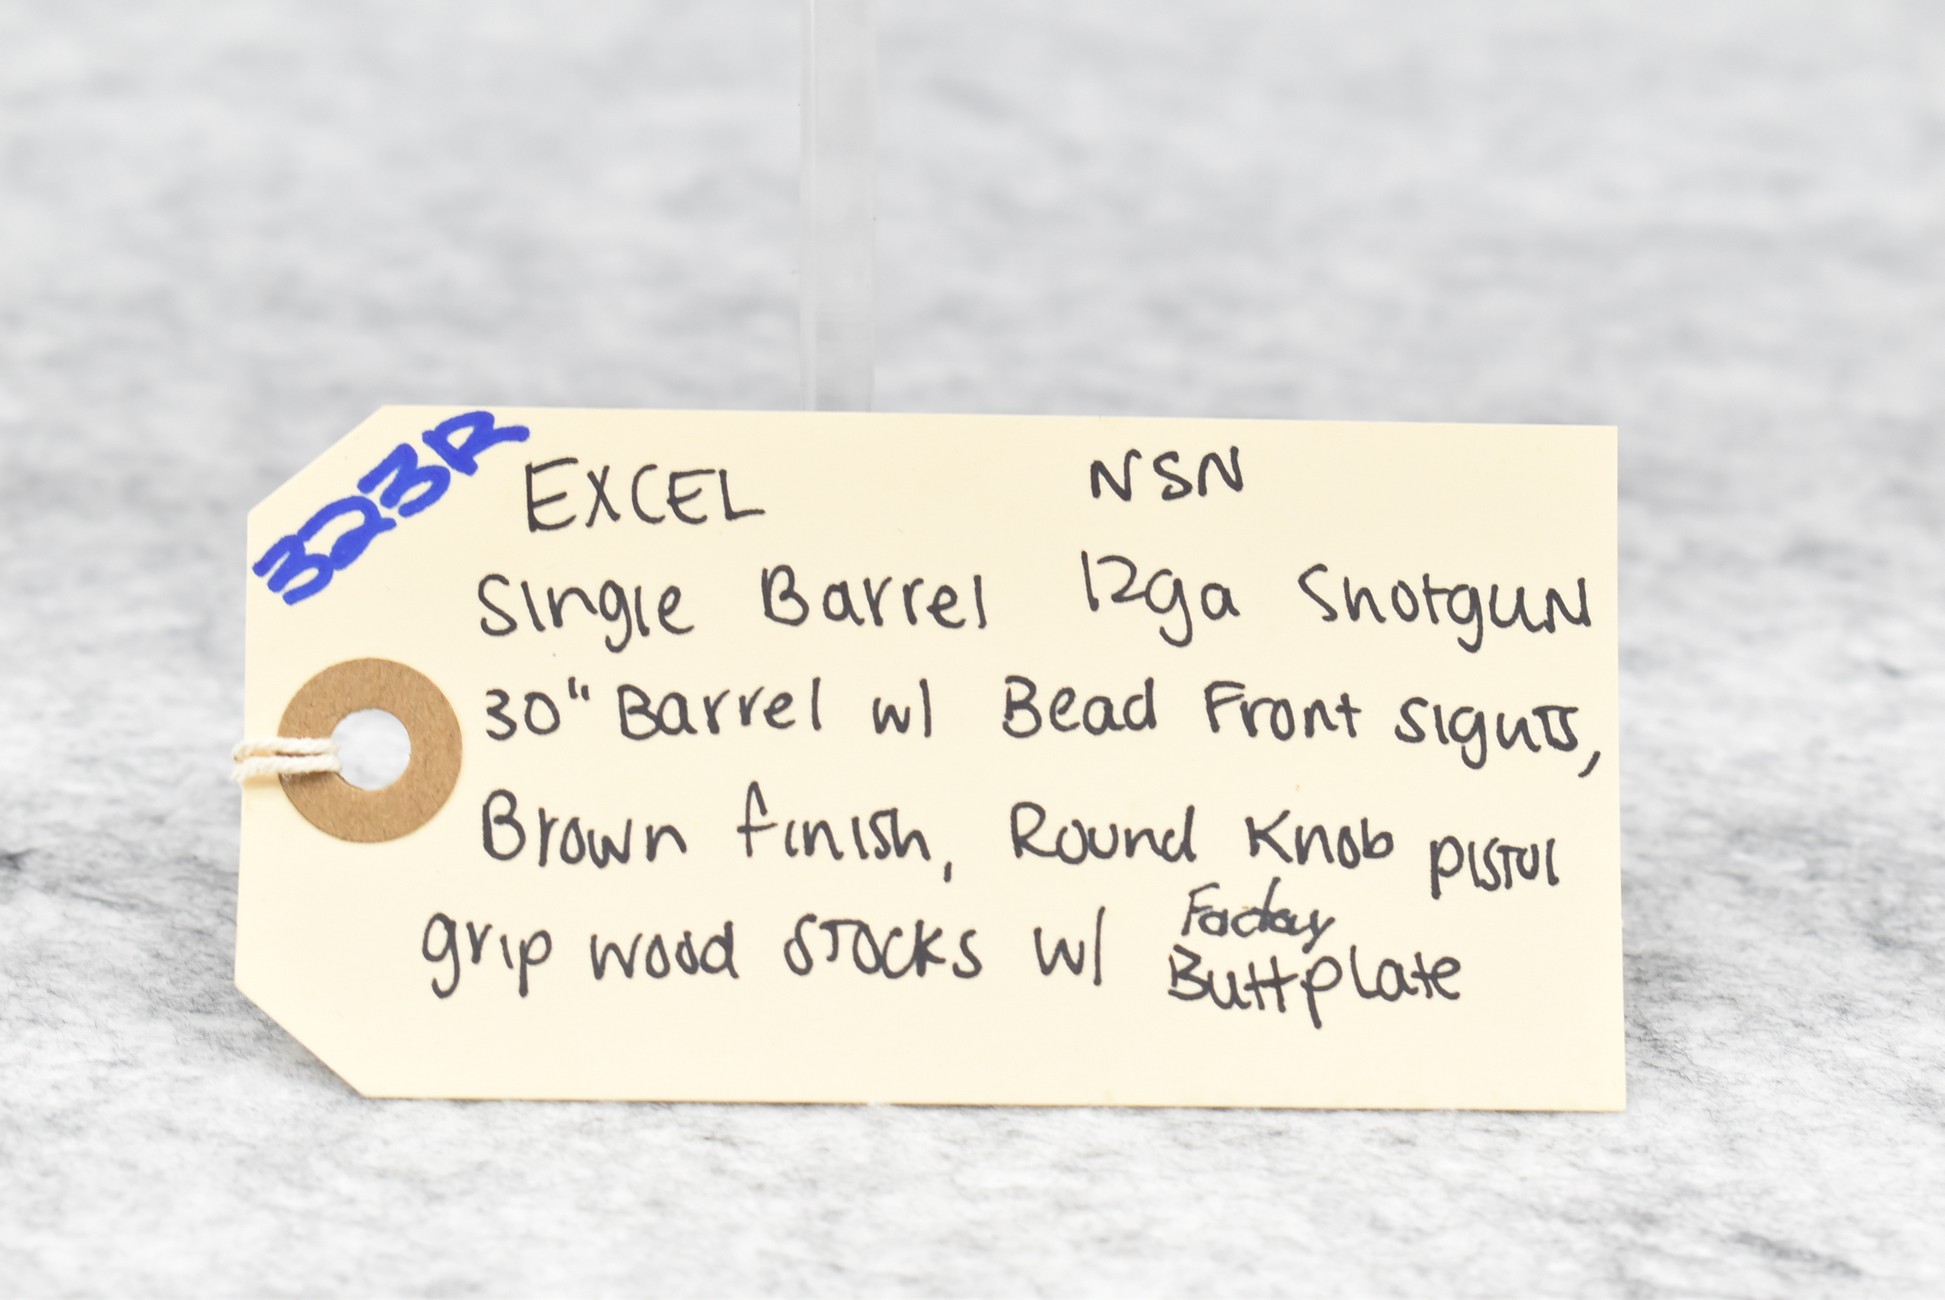 323R
EXCEL NSN
Single Barrel 12ga Shotgun
30" Barrel w/ Bead Front sights,
Brown finish, Round Knob pistol
grip wood stocks w/ Factory
Buttplate